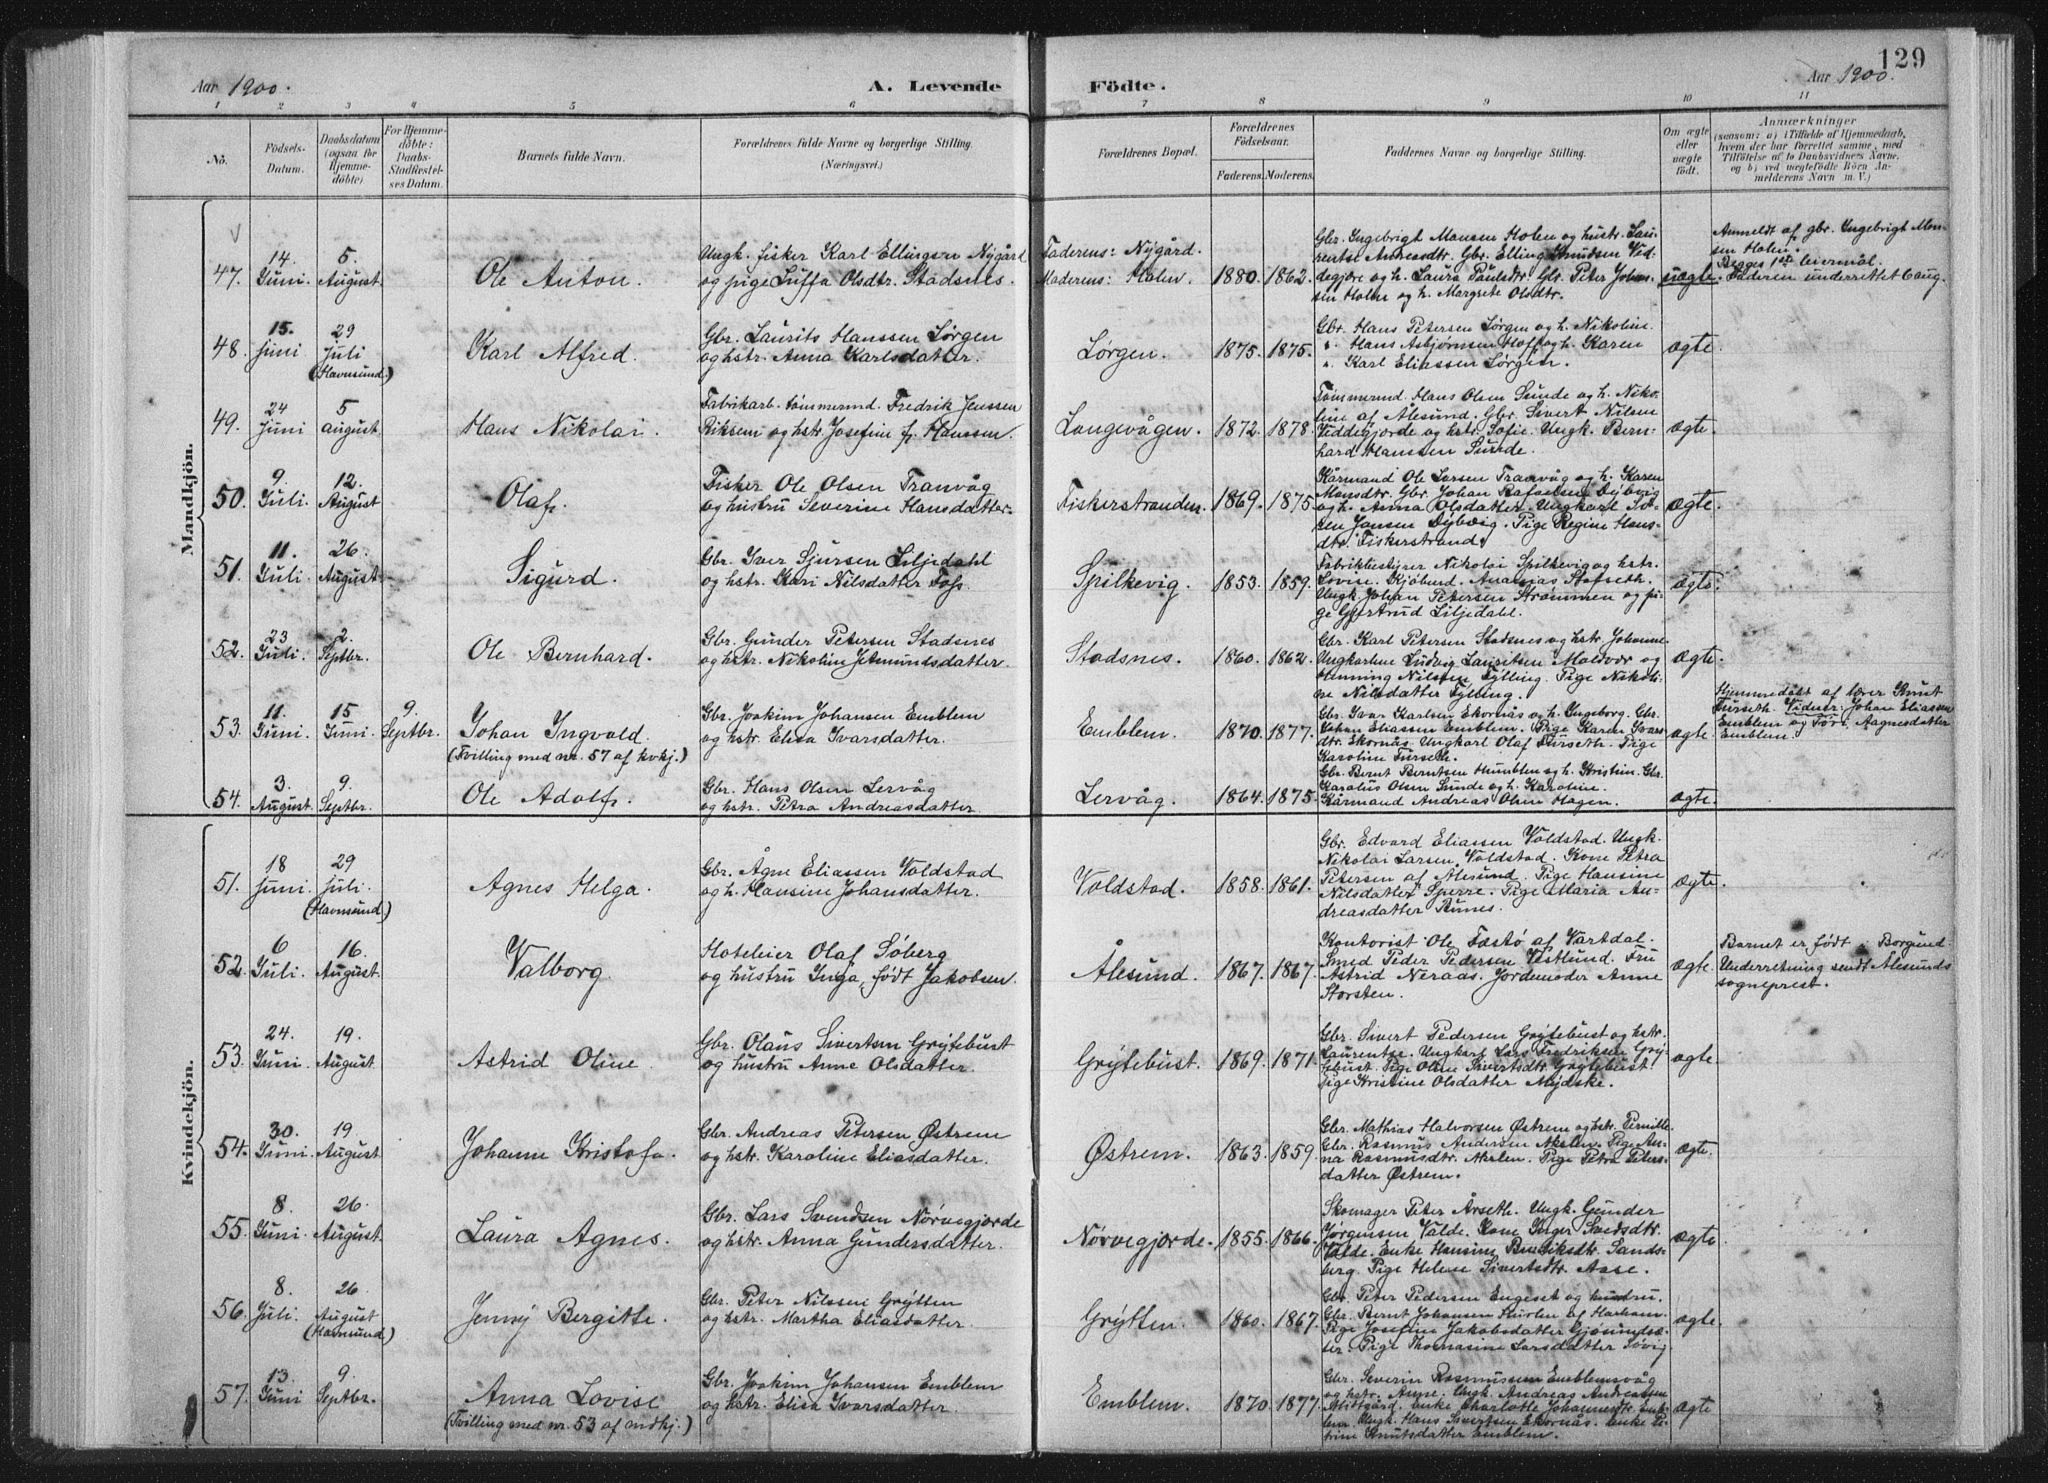 129
Aar 1900.
A. Levende
Födte.
Aar 1900.
1 2 3 4 5 6 7 8 9 10 11
No.
Födsels-Datum.
Daabsdatum (ogsaa for Hjemme-döbte)
For Hjemme-döbte: Daabs-Stadfæstelses Datum.
Barnets fulde Navn.
Forældrenes fulde Navne og borgerlige Stilling. (Næringsvei.)
Forældrenes Bopæl.
Forældrenes Födselsaar.
Faderens. Moderens.
Faddernes Navne og borgerlige Stilling.
Om ægte eller uægte födt.
Anmærkninger
(saasom: a) i Tilfælde af Hjemmedaab, hvem der har forrettet samme, med Tilföielse af to Daabsvidners Navne, og b) ved uægtefödte Börn Anmelderens Navn m. V.)
Mandkjön.
47.
14. Juni
5. August.
Ole Anton.
Ungk. fisker Karl Ellingsen Nygård
og pige Luffa Olsdtr. Stadsnes.
Faderens: Nygård.
Moderens: Holen.
1880. 1862.
Gbr. Ingebrigt Monsen Holen og hustr. Lau-
rentse Andreasdtr. Gbr. Elling Knudsen Ved-
degjerde og h. Laura Paulsdtr. Gbr. Peter Johan-
sen Holen og h. Margrete Olsdtr.
uægte.
Anmeldt af gbr. Ingebrigt Mon-
sen Holen.
Begges 1ste leiermål.
Faderen underrettet 6 aug.
48.
15. Juni
29 Juli (Havnsund.)
Karl Alfred.
Gbr. Laurits Hanssen Lørgen
og hstr. Anna Karlsdatter.
Lørgen.
1875. 1875.
Gbr. Hans Petersen Lørgen og h. Nikoline.
" Hans Asbjørnsen Hoff og h. Karen
" Karl Eliassen Lørgen.
ægte.
49.
24 Juni
5 august.
Hans Nikolai.
Fabrikarb. tømmermd. Fredrik Jenssen
Riksem og hstr. Josefine f. Hanssen.
Langevågen.
1872. 1878.
Tømmermd Hans Olsen Sunde og h. Niko-
line af Ålesund. Gbr. Sivert Nilsen
Veddegjerde og hstr. Sofie. Ungk. Bern-
hard Hanssen Sunde.
ægte.
50.
9. Juli.
12. August
Olaf.
Fisker Ole Olsen Tranvåg
og hustru Severine Hansdatter.
Fiskerstranden.
1869. 1875.
Kårmand Ole Larsen Tranvåg og h. Karen
Monsdtr. Gbr. Johan Rafaelsen Dybvig
og h. Anna Olsdatter. Ungkarl
Jansen Dybvig. Pige Regine Hans-
dtr. Fiskerstrand.
ægte.
51.
11. Juli.
26. August.
Sigurd.
Gbr. Iver Sjursen Liljedahl
og hstr. Kari Nilsdatter Fofs.
Spilkevig.
1853. 1859.
Fabrikbestyrer Nikolai Spilkevig og hstr.
Lovise. Kjøbmd. Ananias Stafseth.
Ungk. Johan Petersen Strømmen og pi-
ge Gjertrud Liljedahl.
ægte.
52.
23 Juli.
2. Septbr.
Ole Bernhard.
Gbr. Gunder Petersen Stadsnes
og hstr. Nikoline Jetmundsdatter.
Stadsnes.
1860. 1862.
Gbr. Karl Petersen Stadsnes og hstr. Johanne.
Ungkarlene Ludvig Lauritsen Moldvær og
Henning Nilssen Fylling. Pige Nikoli-
ne Nilsdatter Fylling.
ægte.
53.
11. Juni.
15 Juni.
9. Septbr.
Johan Ingvald.
(Tvilling med nr. 57 af kvkj.)
Gbr. Joakim Johansen Emblem
og hstr. Elisa Ivarsdatter.
Emblem.
1870. 1877.
Gbr. Ivar Karlsen Ekornås og h. Ingeborg. Gbr.
Johan Eliassen Emblem. Pige Karen Ivars-
dtr. Ekornås. Ungkarl Olaf Furseth. Pige
Karoline Furseth.
ægte.
Hjemmedøbt af lærer Knut
Furseth. Vidner: Johan Eliassen
Emblem og Aagnesdatter
Emblem.
54.
3. August.
9. Septbr.
Ole Adolf.
Gbr. Hans Olsen Lervåg
og hstr. Petra Andreasdatter.
Lervåg.
1864. 1875.
Gbr. Bernt Berntsen Humblen og h. Kristine. Gbr.
Karolus Olsen Sunde og h. Karoline.
Kårmand Andreas Olsen Hagen.
ægte.
Kvindekjön.
51.
18 Juni.
29 Juli. (Havnsund.)
Agnes Helga.
Gbr. Ågne Eliassen Voldstad
og h. Hansine Johansdatter.
Voldstad.
1858. 1861.
Gbr. Edvard Eliassen Voldstad. Ungk.
Nikolai Larsen Voldstad. Kone Petra
Petersen af Ålesund. Pige Hansine
Nilsdatter Sperre. Pige Maria An-
dreasdatter Bunes.
ægte.
52.
6 Juli.
16. August.
Valborg.
Hoteleier Olaf Søberg
og hustru Inga, født Jakobsen.
Ålesund.
1867. 1867.
Kontorist Ole Fæstø af Vartdal.
Smed Peder Pedersen Vestlund. Fru
Astrid Neraas. Jordemoder Anne
Storsten.
ægte.
Barnet er født i Borgund.
Underretning sendt Ålesunds
sogneprest.
53.
24. Juni.
19. August
Astrid Oline
Gbr. Olaus Sivertsen Grytebust
og hustru Anne Olsdatter.
Grytebust.
1869. 1871.
Gbr. Sivert Pedersen Grytebust og hstr.
Laurentse. Ungkarl Lars Fredriksen Gry-
tebust. Pige Oline Sivertsdtr. Grytebust.
Pige Kristine Olsdatter Mydske.
ægte
54.
30. Juni.
19. August
Johanne Kristofa.
Gbr. Andreas Petersen Østrem
og hstr. Karoline Eliasdatter.
Østrem.
1863. 1859.
Gbr. Mathias Halvorsen Østrem og hstr. Pernille.
Gbr. Rasmus Andersen Akslen. Pige An-
na Rasmusdtr. Akslen. Pige Petra Peters-
datter Østrem.
ægte.
55.
8. Juni.
26. August.
Laura Agnes.
Gbr. Lars Svendsen Nørvegjorde
og hstr. Anna Gundersdatter.
Nørvegjorde.
1855. 1866.
Skomager Peter Årseth. Ungk. Gunder
Jørgensen Valde. Kone Inger
Valde. Enke Hansine Sands-
berg. Pige Helene Sivertsdtr. Aase.
ægte
56.
8. Juli.
26. August (Havnsund)
Jenny Bergitte.
Gbr. Peter Nilssen Grytten
og hstr. Martha Eliasdatter.
Grytten.
1860. 1867.
Gbr. Peter Pedersen Engeset og hustru.
Gbr. Bernt Johansen Hurlen af Harham.
Pige Josefine Jakobsdatter Gjøsundsæ-
ter. Pige Thomasine Larsdatter Løvig.
ægte.
57.
13. Juni
9. Septbr.
Anna Lovise
(Tvilling med nr. 53 af mdkj.)
Gbr. Joakim Johansen Emblem
og hstr. Elisa Ivarsdatter.
Emblem.
1870. 1877.
Gbr. Severin Rasmussen Emblemsvåg
og hstr. Anne. Ungk. Andreas Andreassen
Midtgård. Enke Charlotte Johannesdtr. Em-
blem. Ungk. Hans Sivertsen Ekornås. Enke Pe-
trine Knutsdatter Emblem.
ægte